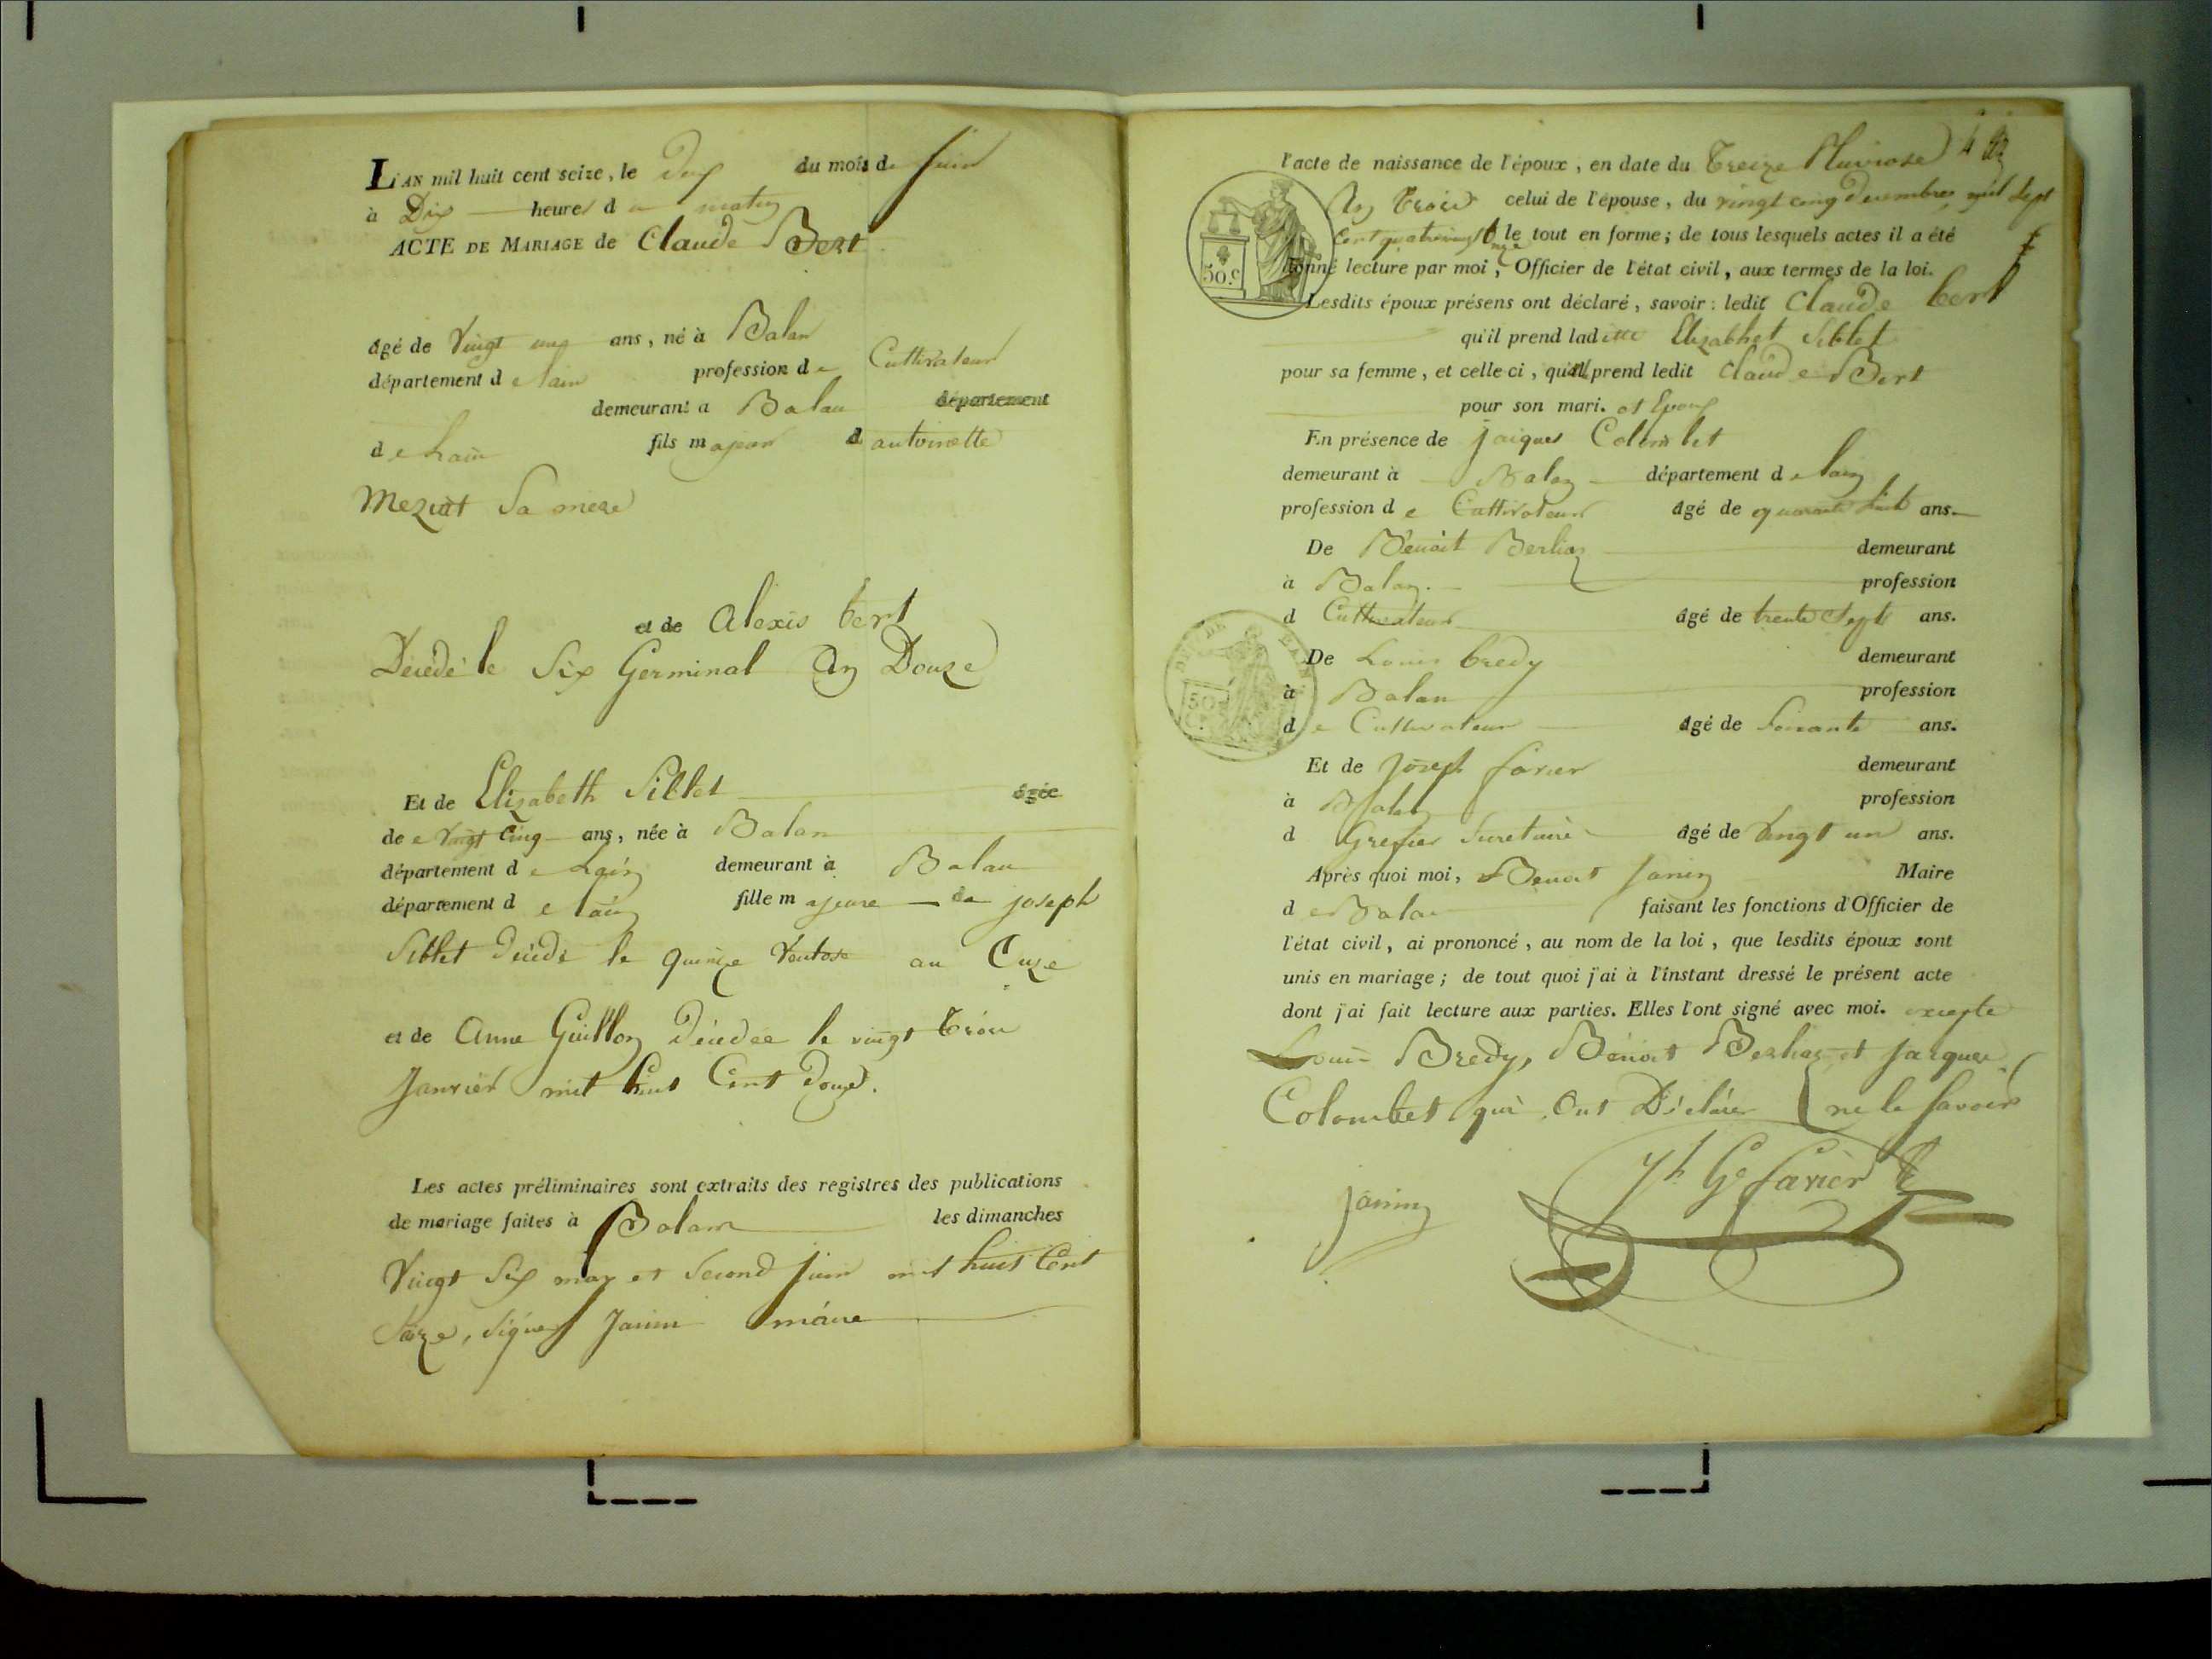 L'AN mil huit cent seize, le Dix du mois de Juin
à Dix heures du matin
ACTE DE MARIAGE de Claude Bert
âgé de Vingt un ans, né à Balan
département de lain profession de Cultivateur
demeurant a Balan département
de Lain fils majeur d antoinette
Meziat Sa mere
et de Alexis bert
Décédé le Six Germinal An Douze
Et de Elizabeth Siblet âgée
de Vingt Cinq ans, née à Balan
département de Lain demeurant à Balan
département de lain fille majeure de joseph
Siblet Décédé le quinze Ventose an Onze
et de Anne Guillon Décedée le vingt Trois
Janvier mil huit Cent Douze.
Les actes préliminaires sont extraits des registres des publications
de mariage faites à Balan les dimanches
Vingt Six may et Second Juin mil huit Cent
Saize, signer Janin maire
l'acte de naissance de l'époux, en date du Treize Pluviose
An Trois celui de l'épouse, du vingt cinq Decembre mil Sept
Cent quatrevingt onze le tout en forme; de tous lesquels actes il a été
donné lecture par moi, Officier de l'état civil, aux termes de la loi.
50.c
Lesdits époux présens ont déclaré, savoir: ledit Claude bert
qu'il prend laditte Elizabhet Siblet
pour sa femme, et celle ci, qu'elle prend ledit Claude Bert
pour son mari. et Epoux
En présence de jaiques Colombet
demeurant à Balan département de lain
profession de Cultivateur âgé de quarante huit ans.
De Benoit Berlioz demeurant
à Balan. profession
d Cultivateur âgé de trente Sept ans.
De Louis bredy demeurant
à Balan profession
de Cultivateur âgé de Soixante ans.
50
Et de Joseph farier demeurant
à Balan profession
d Grefier Secretaire âgé de Vingt un ans.
Après quoi moi, Benoit Janin Maire
de Balan faisant les fonctions d'Officier de
l'état civil, ai prononcé, au nom de la loi, que lesdits époux sont
unis en mariage; de tout quoi j'ai à l'instant dressé le présent acte
dont j'ai fait lecture aux parties. Elles l'ont signé avec moi. excepte
Louis Bredy, Bénoit Berlioz et Jacques
Colombet qui Ont Déclarer ne le Savoir
Janin
farier